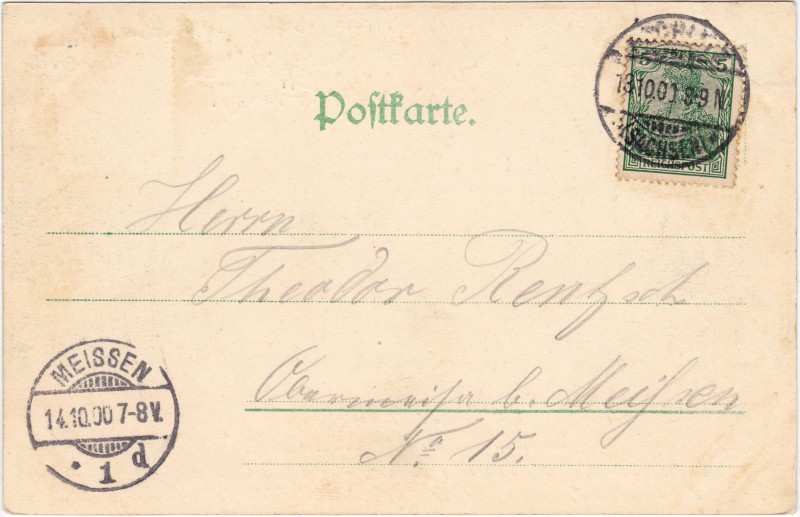 5 5
13.10.00 8-9 N
(SACHSEN)
REICHSPOST
Postkarte.
Herrn
Theodor Rentzsch
Obermeisa b. Meißen
No 15.
MEISSEN
14.10.00 7-8 V.
* 1 d